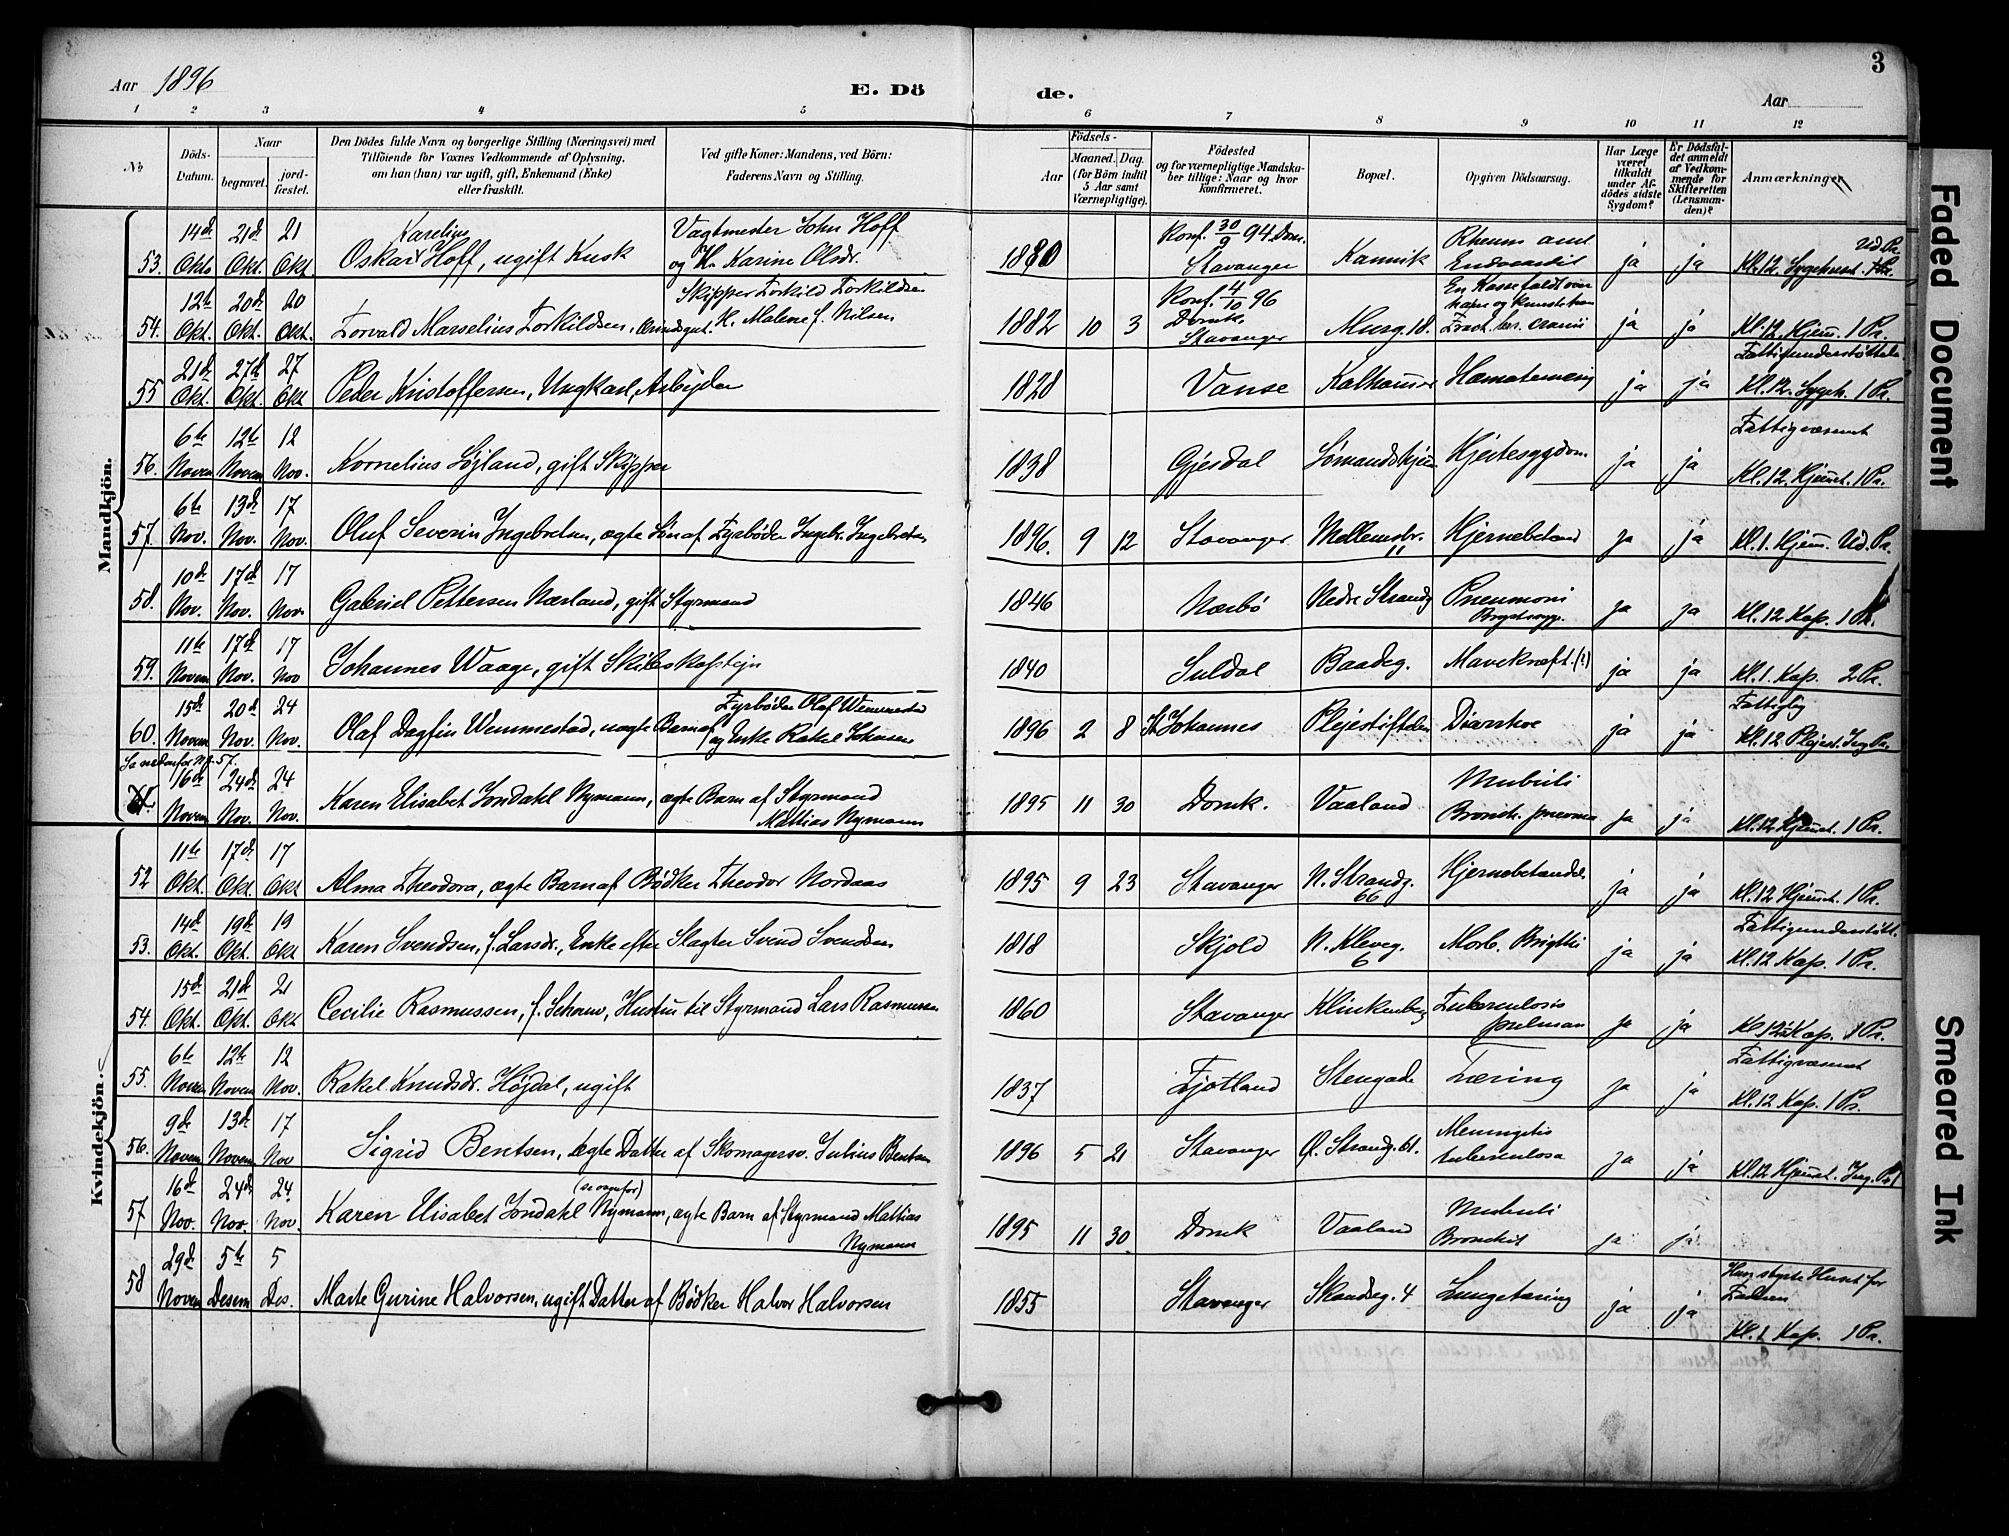 Aar 1896
E. Dö
de.
Aar
3
1 2 3 4 5 6 7 8 9 10 11 12
No
Döds-Datum.
Naar
begravet.
jord-fæstet.
Den Dödes fulde Navn og borgerlige Stilling (Næringsvei) med
Tilföiende for Voxnes Vedkommende af Oplysning,
om han (hun) var ugift, gift, Enkemand (Enke)
eller fraskilt.
Ved gifte Koner: Mandens, ved Börn:
Faderens Navn og Stilling.
Födsels-
Aar
Maaned. Dag.
(for Börn indtil
5 Aar samt
Værnepligtige).
Födested
og for værnepligtige Mandska-
ber tillige: Naar og hvor
konfirmeret.
Bopæl.
Opgiven Dödsaarsag.
Har Læge
været
tilkaldt
under Af-
dödes sidste
Sygdom?
Er Dödsfal-
det anmeldt
af Vedkom-
mende for
Skifteretten
(Lensman-
den)?
Anmærkninger
Mandkjön.
53. 14de Okt. 21de Okt. 21 Okt. Oskar Karelius Hoff, ugift Kusk Vagtmester John Hoff og H. Karine Olsdr. 1880 Konf. 30/9 94 Dom. Stavanger Kannik Rheum. Endocardit ja ja Kl. 12. Ud. Pr.
54. 12te Okt. 20de Okt. 20 Okt. Torvald Marselius Torkildsen, Skipper Torkild Torkildsen H. Malene f. Nilsen 1882 10 3 Konf. 4/10 96 Domk. Stavanger Murg. 18. En Kasse faldt over ham Fract. cranii ja ja Kl. 12. Hjem. 1 Pr.
55 21de Okt. 27de Okt. 27 Okt Peder Kristoffersen, Ungkarl, Arbejder 1828 Vanse Kalhammer Hæmatemesis ja ja Fattigunderstøttelse Kl. 12. Sygeh. 1 Pr.
56. 6te Novem 12te Novem 12 Nov. Kornelius Søjland, gift Skipper 1838 Gjesdal Hjertesygdom ja ja Fattigvæsenet Kl. 12. Hjemmet. 1 Pr.
57. 6te Nov. 13de Nov. 17 Nov. Oluf Severin Ingebretsen, ægte Søn af Fyrbøder Ingebr. Ingebretsen 1896. 9 12 Stavanger Møllemsbr. 11 Hjernebetænd ja ja Kl. 1. Hjem. Ud. Pr.
58. 10de Nov. 17de Nov. 17 Nov. Gabriel Pettersen Nærland, gift Styrmand 1846 Nærbø Nedre Strandg Pneumoni Brystsyg. ja ja Kl. 12 Kap. 1 Pr.
59. 11te Novem 17de Nov. 17 Nov Johannes Waage, gift Skibskaptejn 1840 Suldal Baadeg. Mavekræft. (?) ja ja Kl. 1. Kap. 2 Pr.
60. 15de Novem 20de Nov. 24 Nov. Olaf Dagfin Wemmestad, uægte Barn af Fyrbøder Olaf Wemmestad og Enke Rakel Johnsen 1896 2 8 St. Johannes Plejestiftelsen Diarrhoe ja ja Fattiglig Kl. 12 Plejest. Ing. Pr.
Se nedenfor No 57.
16de Novem 24de Nov. 24 Nov. Karen Elisabet Jondahl Nymann, ægte Barn af Styrmand Mathias Nymann 1895 11 30 Domk. Vaaland Bronch. pneumo ja ja Kl. 12 Hjemmet. 1 Pr.
Kvindekjön.
52 11te Okt. 17de Okt. 17 Okt Alma Theodora, ægte Barn af Bødker Theodor Nordaas 1895 9 23 Stavanger N. Strandg. 66 Hjernebetændelse ja ja Kl. 12 Hjemmet. 1 Pr.
53. 14de Okt. 19de Okt. 19 Okt Karen Svendsen, f. Larsdr., Enke efter Slagter Svend Svendsen 1818 Skjold N. Kleveg. 6 Morb. Brigthi ja ja Fattigunderstøtt. Kl. 12 Kap. 1 Pr.
54. 15de Okt. 21de Okt. 21 Okt Cecilie Rasmussen, f. Hustru til Styrmand Lars Rasmussen 1860 Stavanger Klinkenberg Tuberculosis pulman ja ja Kl. 12 Kap. 1 Pr.
55. 6te Novem 12te Novem 12 Nov. Rakel Knudsdr. Højdal, ugift 1837 Fjotland Stengade Tæring ja ja Fattigvæsenet Kl. 12 Kap. 1 Pr.
56. 9de Novem 13de Novem 17 Nov Sigrid Bentsen, ægte Datter af Skomagersv. Julius Bentsen 1896 5 21 Stavanger Ø. Strandg. 61. Meningitis tuberculosa ja ja Kl. 12 Hjemmet. Ing. Pr.
57 16de Nov. 24de Nov. 24 Nov. Karen Elisabet Jondahl Nymann, (se ovenfor) ægte Barn af Styrmand Mathias Nymann 1895 11 30 Domk Vaaland Bronchit ja ja
58 29de Novem 5te Desem 5 Des. Marte Gurine Halvorsen, ugift Datter af Bødker Halvor Halvorsen 1855 Stavanger Skandseg. 4 Lungetæring ja ja Hun styrte Huset for Faderen Kl. 1 Kap. 1 Pr.
Faded Document
Smeared Ink